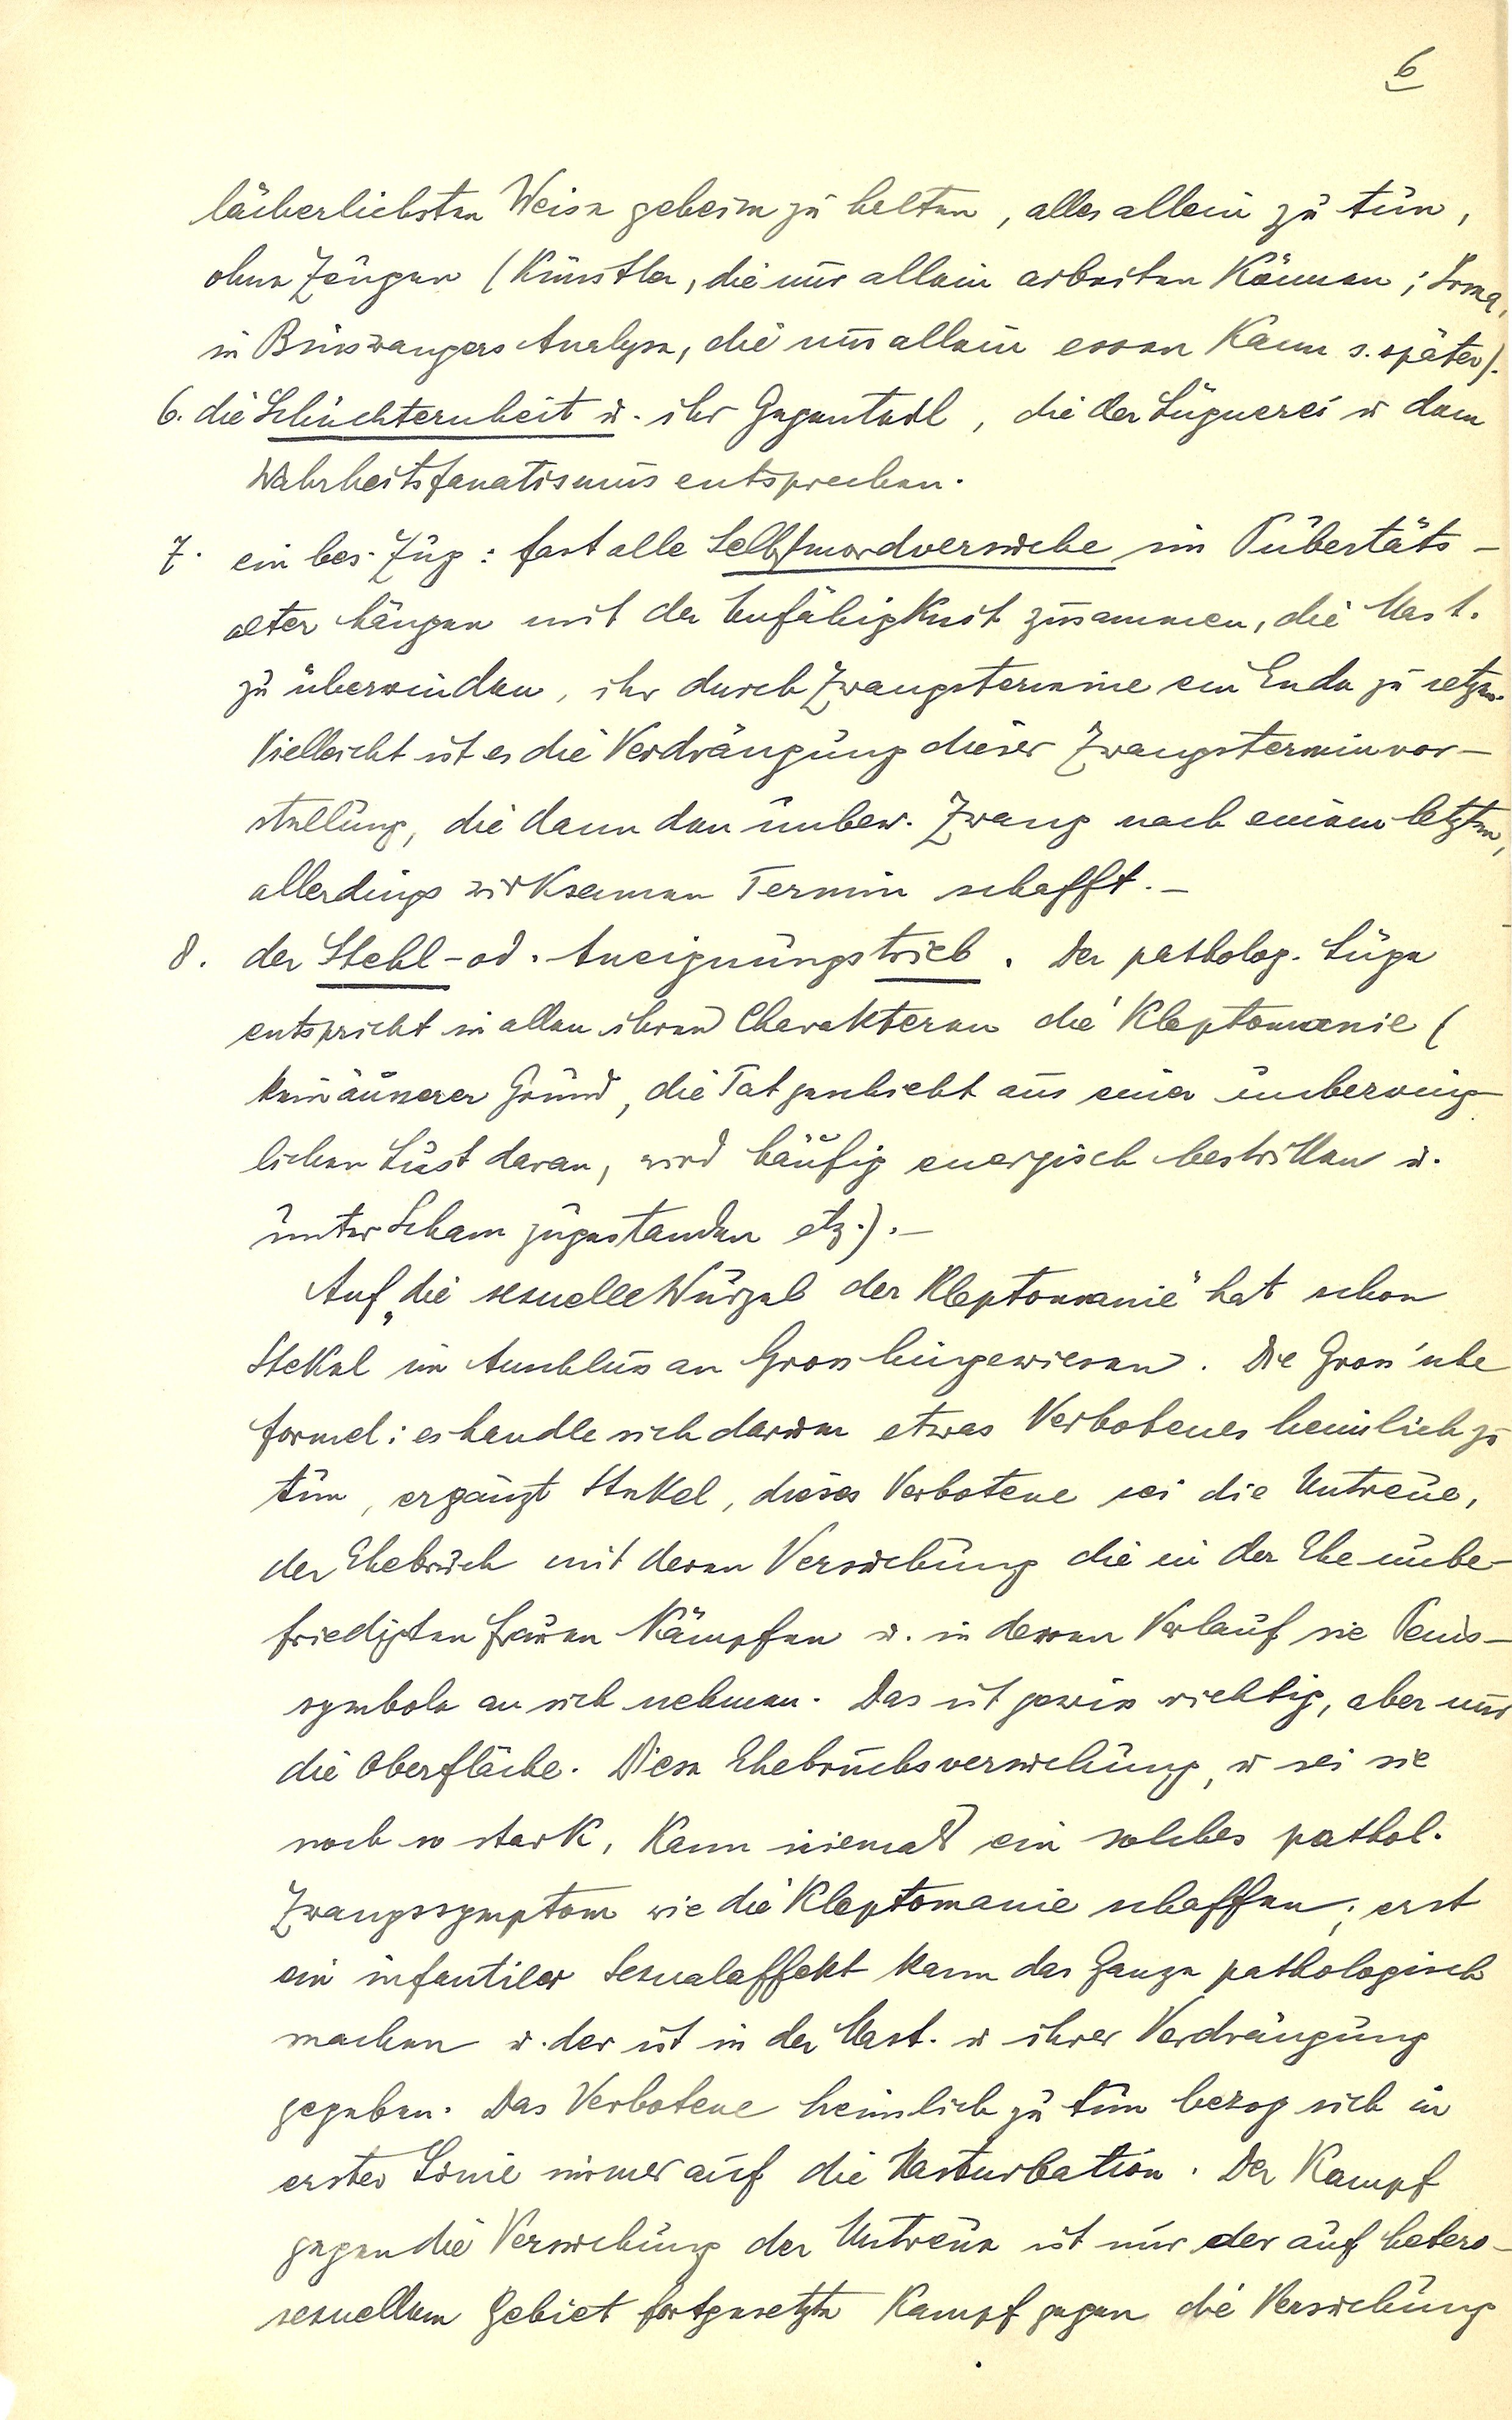 6
lächerlichsten Weise geheim zu halten, alles allein zu tun,
ohne Zeugen (Künstler, die nur allein arbeiten können; Irma,
in Binswangers Analyse, die nur allein essen kann s. später).
6. die Schüchternheit u. ihr Gegenteil, die der Lügnerei u dem
Wahrheitsfanatismus entsprechen.
7. ein bes. Zug: fast alle Selbstmordversuche im Pubertäts-
alter hängen mit der Unfähigkeit zusammen, die Mast.
zu überwinden, ihr durch Zwangstermine ein Ende zu setzen.
Vielleicht ist es die Verdrängung dieser Zwangsterminvor-
stellung, die dann den unbew. Zwang nach einem letzten,
allerdings wirksamen Termin schafft.–
8. der Stehl- od. Aneignungstrieb. Der patholog. Lüge
entspricht in allen ihren Charakteren die Kleptomanie (
kein äusserer Grund, die Tat geschieht aus einer unbezwing-
lichen Lust daran, wird häufig energisch bestritten u.
unter Scham zugestanden etz.).–
Auf „die sexuelle Wurzel der Kleptomanie" hat schon
Stekel im Anschluss an Gross hingewiesen. Die Gross'sche
Formel: es handle sich darum etwas Verbotenes heimlich zu
tun, ergänzt Stekel, dieses Verbotene sei die Untreue,
der Ehebruch mit deren Versuchung die in der Ehe unbe-
friedigten Frauen kämpfen u. in deren Verlauf sie Penis-
symbole an sich nehmen. Das ist gewiss richtig, aber nur
die Oberfläche. Diese Ehebruchsversuchung, u sei sie
noch so stark, kann niemals ein solches pathol.
Zwangssymptom wie die Kleptomanie schaffen; erst
ein infantiler Sexualaffekt kann das Ganze pathologisch
machen u. der ist in der Mast. u ihrer Verdrängung
gegeben. Das Verbotene heimlich zu tun bezog sich in
erster Linie immer auf die Masturbation. Der Kampf
gegen die Versuchung der Untreue ist nur der auf hetero-
sexuellem Gebiet fortgesetzte Kampf gegen die Versuchung